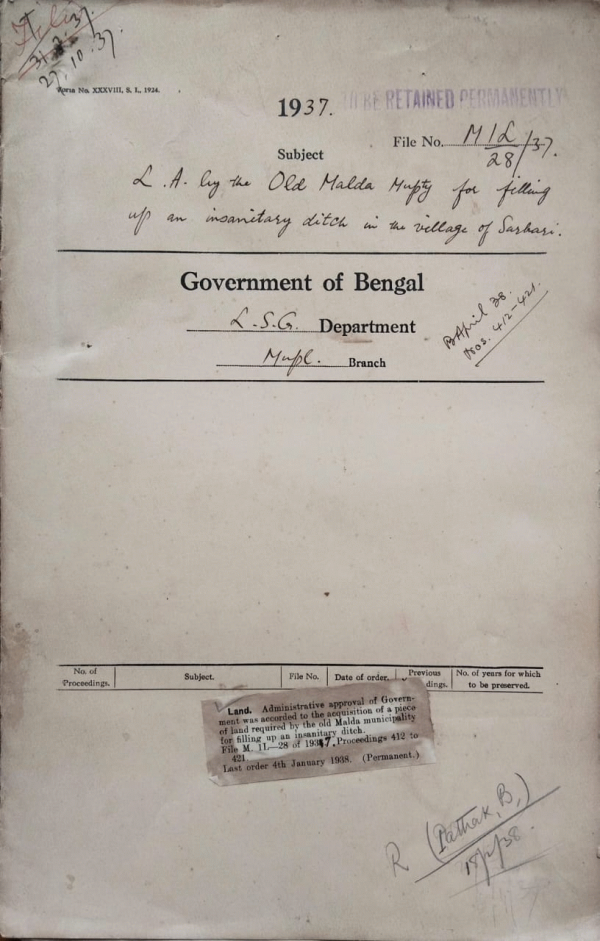 File
31.3.37.
27.10.37.
Form No. XXXVIII, S. I., 1924.
TO BE RETAINED PERMANENTLY
1937.
File No. M1L/28/37.
Subject
L. A. by the Old Malda Mupty for filling
up an insanitary ditch in the village of Sarbari.
Government of Bengal
L.S.G. Department
Mupl. Branch
B April 38.
Nos. 412-421.
No. of Proceedings.
Subject.
File No.
Date of order.
Previous dings.
No. of years for which to be preserved.
Land. Administrative approval of Govern-
ment was accorded to the acquisition of a piece
of land required by the old Malda municipality
for filling up an insanitary ditch.
File M. 1L—28 of 1937. Proceedings 412 to
421.
Last order 4th January 1938. (Permanent.)
R (Pathak, B,)